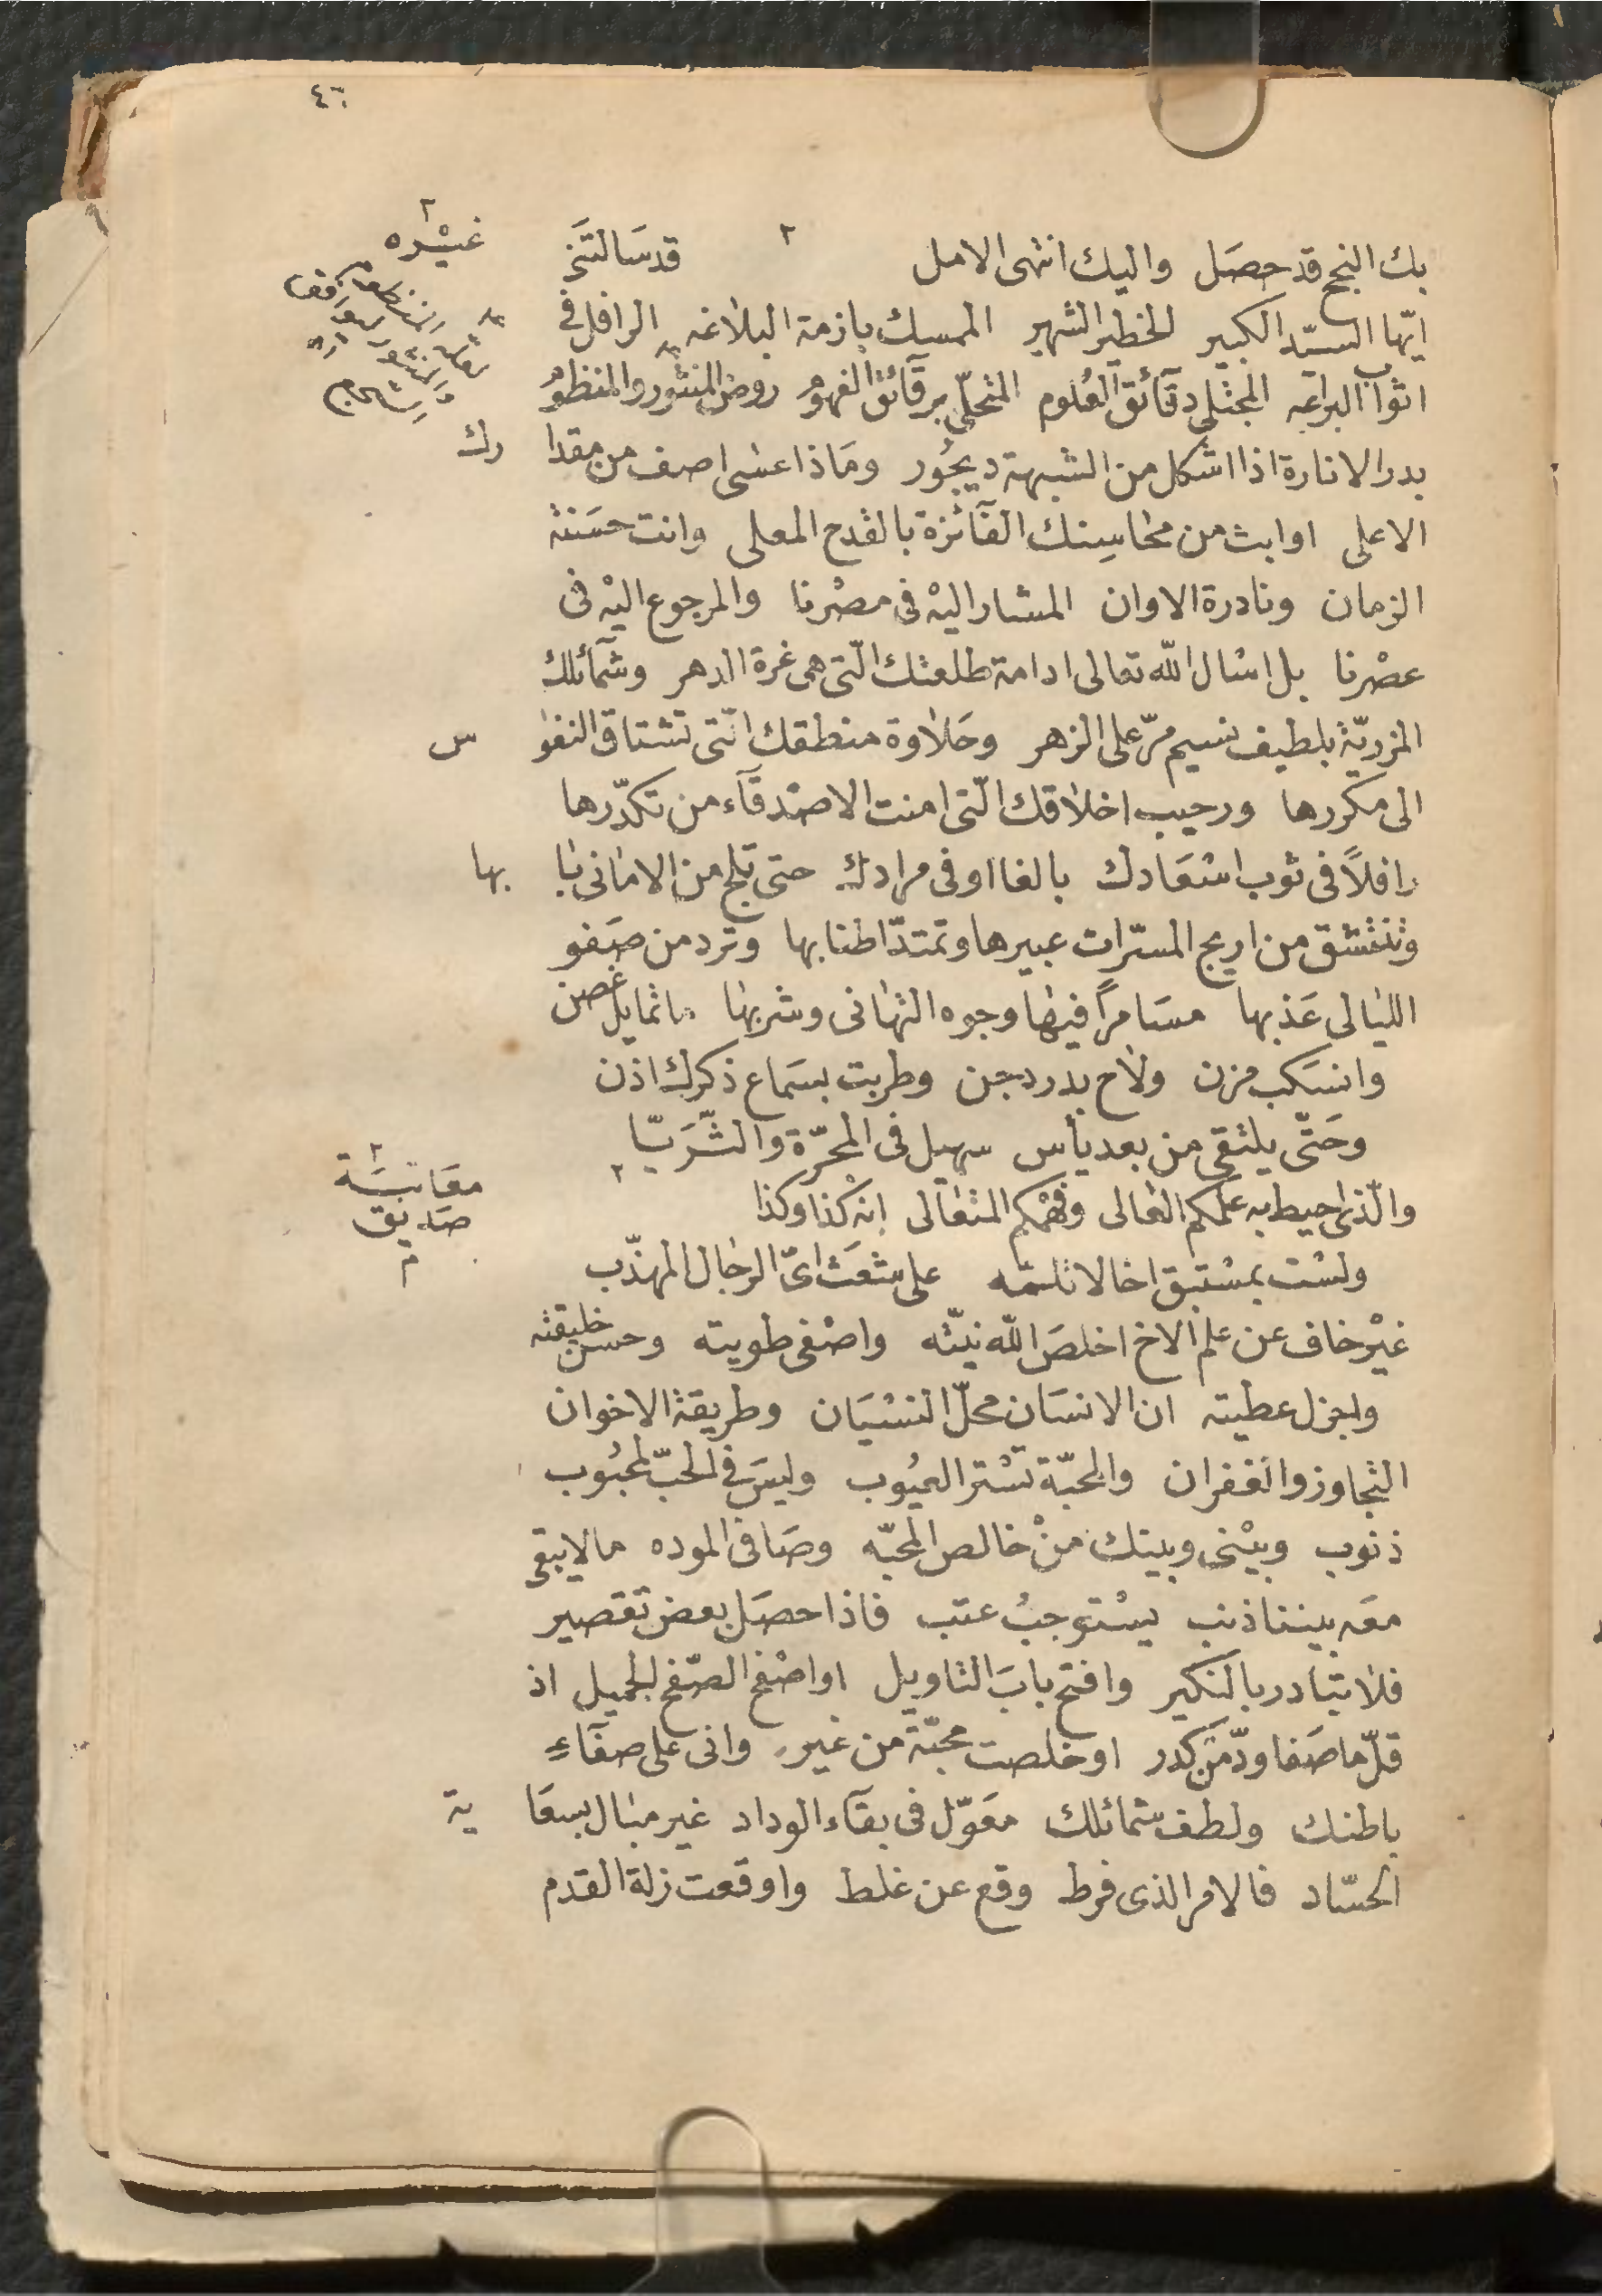 ٤٦
بك النجح قد حصَل واليك انتهى الامل ٢ قد سَالتَنى
ايّها السيّد الكبير الخطير الشهير الممسك بازمة البلاغه الرافل فى
اثواب البراعه المجتلى دقآئق العُلوم المتحلّى برقآئق الفهوم روض المنثور والمنظوم
بدر الانارة اذا اشكل من الشبهة ديجُور ومَاذا عسٰى اصف من مقدارك
الاعلى او ابث من محاسِنك الفآئزة بالقدح المعلى وانت حسَنة
الزمان ونادرة الاوان المشار اليْه فى مصْرنا والمرجوع اليْه فى
عصْرنا بل اسْال الله تعالى ادامة طلعتك الّتى هى غرة الدهر وشمآئلك
المزريّة بلطيف نسيم مرّ على الزهر وحَلاوة منطقك الّتى تشتاق النفوس
الى مكررها ورحيب اخلاقك الّتى امنت الاصْدقآء من تكدّرها
رافلاً فى ثوب اسْعَادك بالغا اوفى مرادك حتى تلج من الامانى بابها
وتنتشق من اريج المسرّات عبيرها وتمتدّ اطنابها وترد من صَفو
الليالى عَذبها مسَامراً فيها وجوه التهَانى وشربها ما تمايل غصن
وانسَكب مزن ولاح بدر دجن وطربت بسَماع ذكرك اذن
وحَتّى يلتقى من بعد يأس سهيل فى المجرّة والثّرَيّا ٢
والّذى احيط به علمكم العٰالى وفهْمكم المتعٰالى انه كذا وكذا
ولسْت بمسْتبق اخا لا تلمّه على شعَث اىّ الرجال المهذّب
غيْر خاف عن علم الاخ اخلصَ الله نيّته واصْفى طويته وحسن خليقته
واجزل عطيته ان الانسَان محلّ النسْيَان وطريقة الاخوان
التجاوز والغفران والمحبّة تسْتر العيُوب وليسَ فى الحبّ لمحبُوب
ذنوب وبيْنى وبينك منْ خالص المحبّه وصَافى الموده ما لا يبقى
معَه بيننا ذنب يسْتوجبُ عتب فاذا حصَل بعض تقصير
فلا تبادر بالنكير وافتح بابَ التاويل او اصْفح الصّفح الجميل اذ
قلّ ما صَفا ودّ من كدر او خلصت محبّة من غير وانى على صفآء
باطنك ولطف شمائلك معَوّل فى بقآء الوداد غير مبَال بسعَاية
الحسّاد فالامر الذى فرط وقع عن غلط واوقعت زلة القدم
٢
غيْره
معَاتبَة
صَديق
م